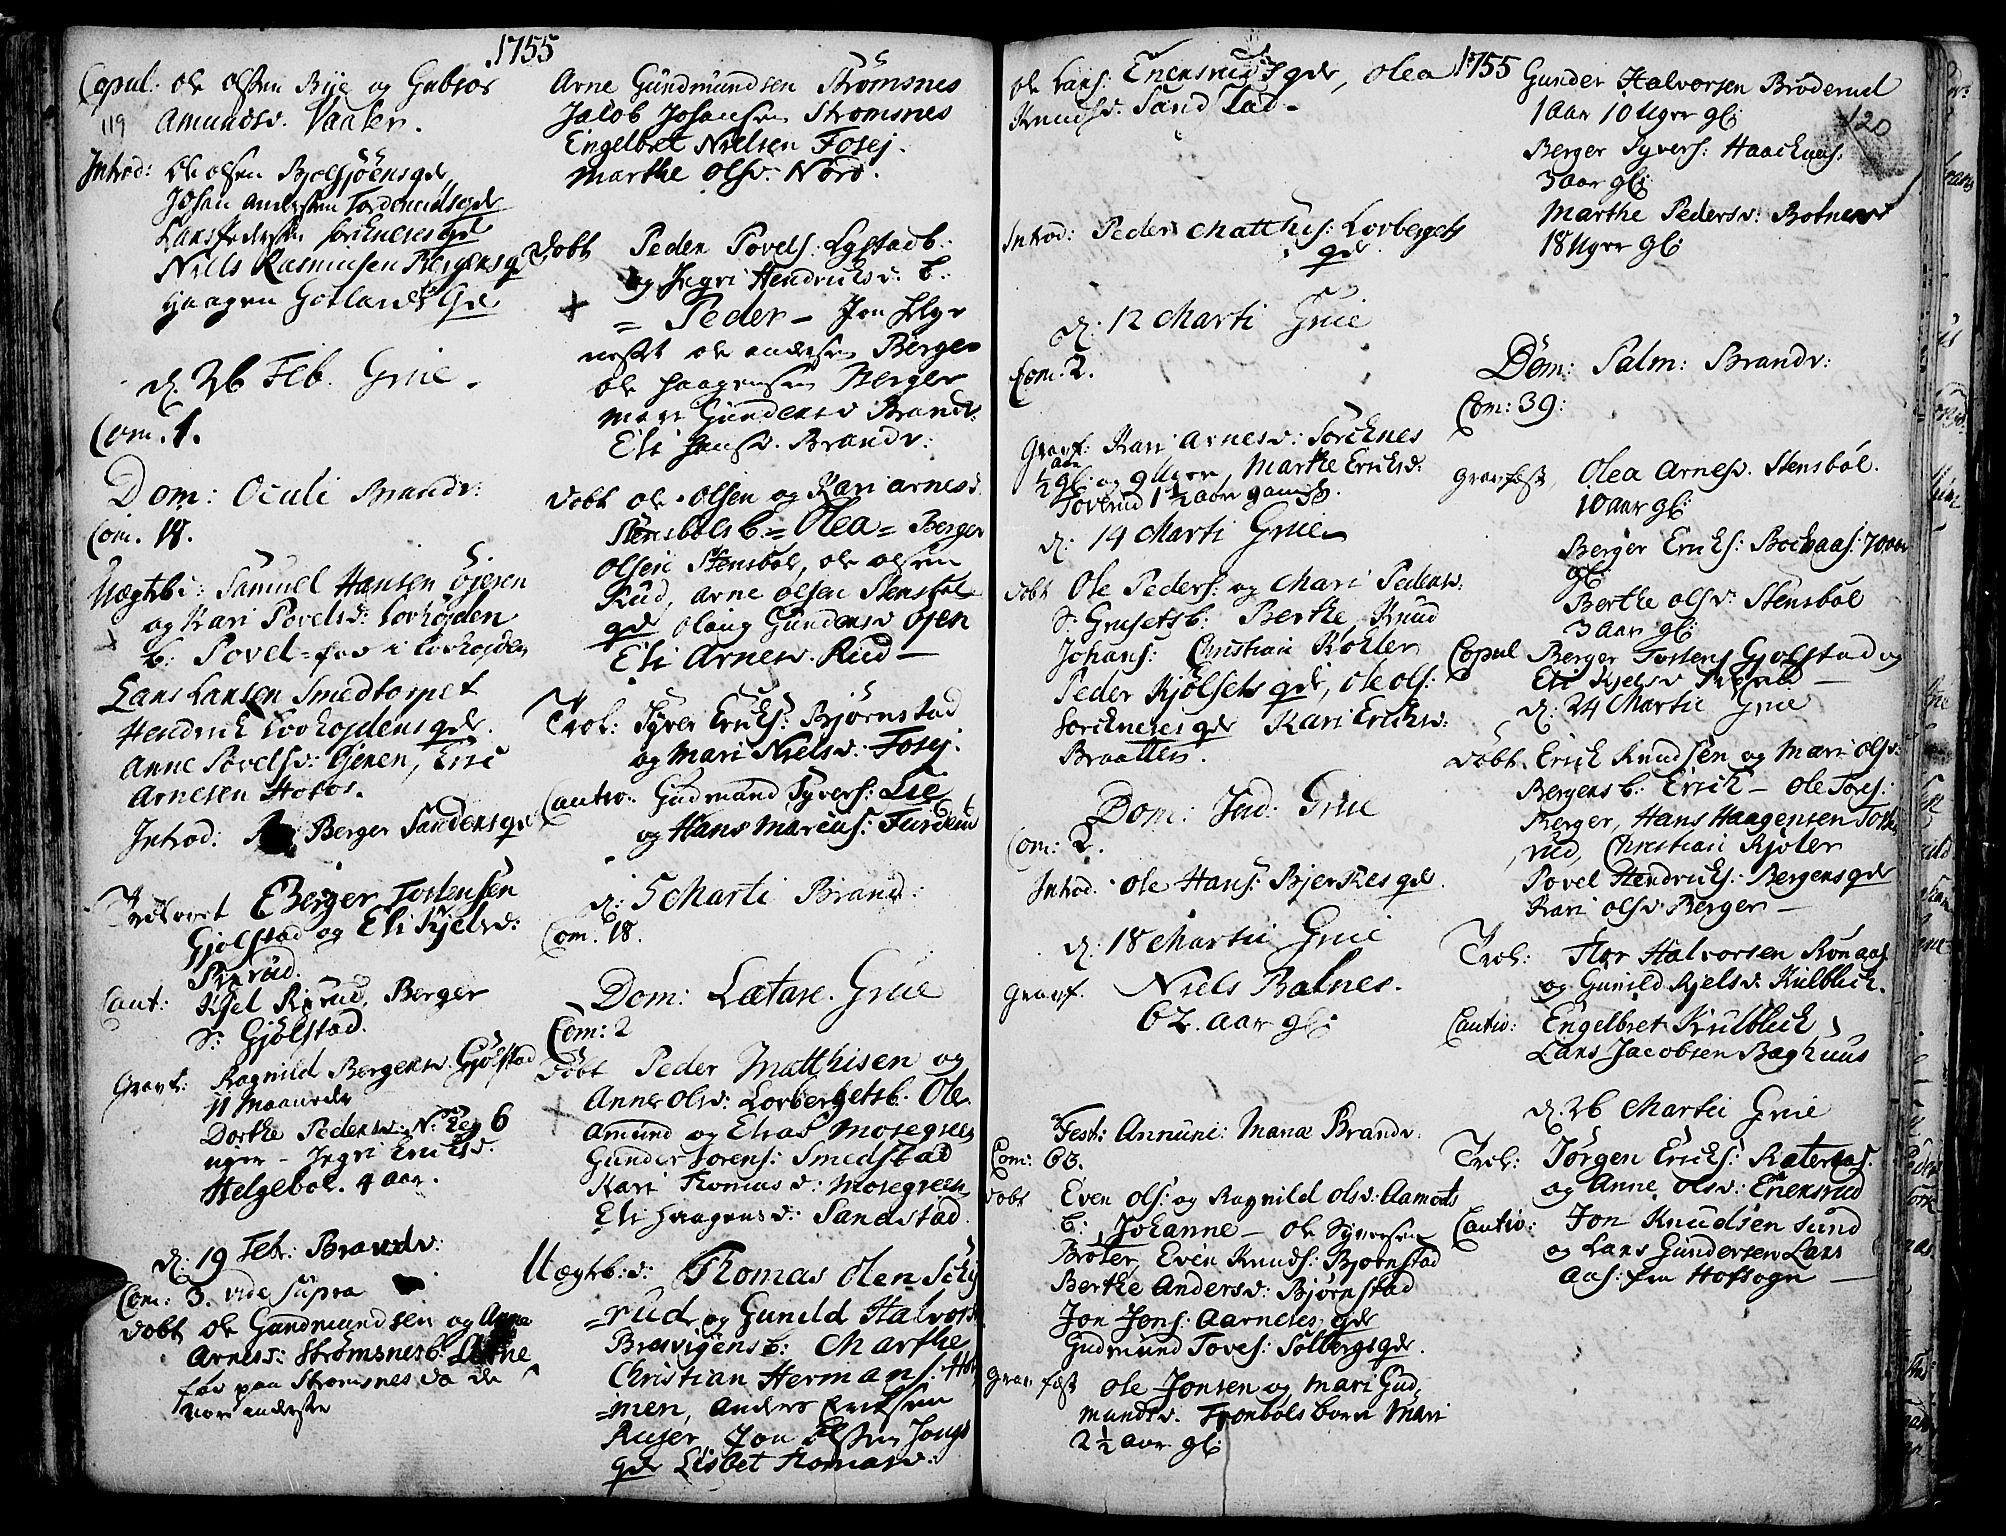 1755
Copul: ole olsen Bye og Giebior
119 Amundsd. Vaaler.
Introd: Ole olsen Bolsjöens qde
Johan Andersen Torderuds qde
Lars Pedersen Sorcknes qde
Niels Rasmusen Bergers q
Haagen Gotlands qde
d: 26 Feb. Grue.
Com. 1.
Dom: Oculi Brandv:
Com. 18.
Uægtb: Samuel Hansen S. öjeren
og Kari Povelsd: Lovhojden
b. Povel = før i Lovhojden
Lars Larsen Smedtorpet
Hendrick Lovhojdens qde
Anne Povelsd: Öjeren, Eric
Arnesen Hofos.
Introd: Berger Sandens qde
Trolovet Berger Tostensen
Gjölstad og Eli Kjelsd:
Rirud.
Caut: Kjel Rirud, Berger
S: Gjölstad.
Gravf: Ragnild Bergersd. Gjölstad
11 Maaneder
Dorthe Pedersd. N: Eeg 6
uger - Ingri Ericksd.
Helgeböl. 4 aar.
d: 19 Feb: Brandv:
Com: 3. vide supra
döbt ole Gundmundsen og Anne
Arnesd: Strömsnes b:
før paa Strömsnes da de
vare andersten
Arne Gundmundsen Strömsnes
Jacob Johansen Strömsnes
Engelbret Nielsen Fosej.
Marthe olsd: Nord.
Döbt Peder Povels: Lystad b:
og Ingri Hendricksd: b.
= Peder - Jon Elge
nestet ole andersen Berger
ole Haagensen Berger
Mari Gundersd Brandv:
Eli Hansd. Brandv:
Döbt ole olsen og Kari arnesd
Stensböls b. = Olea = Berger
olsen Stensböl, ole olsen
Rud, arne olsen Stensböl
qde olaug Gundersd Öjen
Eli Arnesd. Rud -
Trol: Syver Ericks: Björnstad
og Mari Nielsd: Fosej.
Cautio: Gudmand Syvers: Lie
og Hans Marcus: Turderud
d: 5 Marti Brandv:
Com. 18.
Dom: Lætare. Grue
Com: 2
Döbt Peder Matthisen og
Anne olsd: Lorberget b. Ole
Amund og Elias Mosegreen
Gunder Sorens: Smedstad
Kari Thomasd: Mosegreen
Eli Haagensd: Sandstad
Uægteb: d: Thomas Olsen Schy
=rud og Gunild Halvorsd
Bresvigens b: Marthe
Christian Hermans: Hol
=men, Anders Ericksen
Rujer, Jon olsen Jongs
qde Lisbet Thomasd:
ole Lars: Enensruds qde, olea 1755
Knudsd: Sand Lad -
Introd: Peder Matthis: Lorbergets
qde.
d: 12 Marti Grue
Com. 2.
Gravf: Kari Arnesd: Sorcknes
½ aar gl: og 9 Uger, Marthe Ericksd:
Toverud 1½ aar gamel.
d: 14 Marti Grue
Döbt Ole Peders: og Mari Pedersd:
S: Grusets b. Berthe, Knud
Johans: Christian Kobler
Peder Kjölsets qde, ole ols:
Sorcknesets qde Kari Ericksd:
Braatten.
Dom: Jud: Grue
Com: 2.
Introd. ole Hans: Bjerkes qde.
d: 18 Martii Grue
Gravf. Niels Balnes.
62. aar gl:
Fest: Annunc: Mariæ Brandv:
Com: 63.
Döbt Even ols: og Ragnild olsd: Aamots
b: Johanne - ole Syversen
Bröter, Even Knuds: Bjornstad
Berthe Andersd: Bjørnstad
Jon Jons: Aarnes qde
Gudmund Toves: Solbergs qde.
Gravfæst ole Jonsen og Mari Gud
mundsd. Fronbols barn Mari
2½ aar gl:
Gunder Halvorsen Bröderud
1 aar 10 Uger gl:
120
Berger Syvers: Haacknæs:
3 aar gl:
Marthe Pedersd: Botner
18 Uger gl:
Dom: Palm: Brandv:
Com: 39:
Gravfæst, Olea Arnesd. Stensböl.
10 aar gl:
Berger Ericks: Bockaas: 70 aar
gl:
Berthe olsd: Stensböl
3 aar gl:
Copul Berger Tostens Gjolstad og
Eli Kjelsd Rirud -
d: 24 Martii Grue
Döbt. Erick Knudsen og Mari olsd:
Bergers b: Erick - ole Tores:
Berger, Hans Haagensen Torke
rud, Christian Kjöler
Povel Hendricks: Bergers qde
Kari olsd Berger -
Trol: Flor Halvorsen Rönaas
og Gunild Kjelsd: Kulblick.
Cautio: Engelbret Kulblick
Lars Jacobsen Baghuus
d: 26 Martii Grue
Trol: Jörgen Ericks: Rateraas.
og Anne olsd: Enensrud
Cautio: Jon Knudsen Sund
og Lars Gundersen Lars
aas: fra Hofsogn -